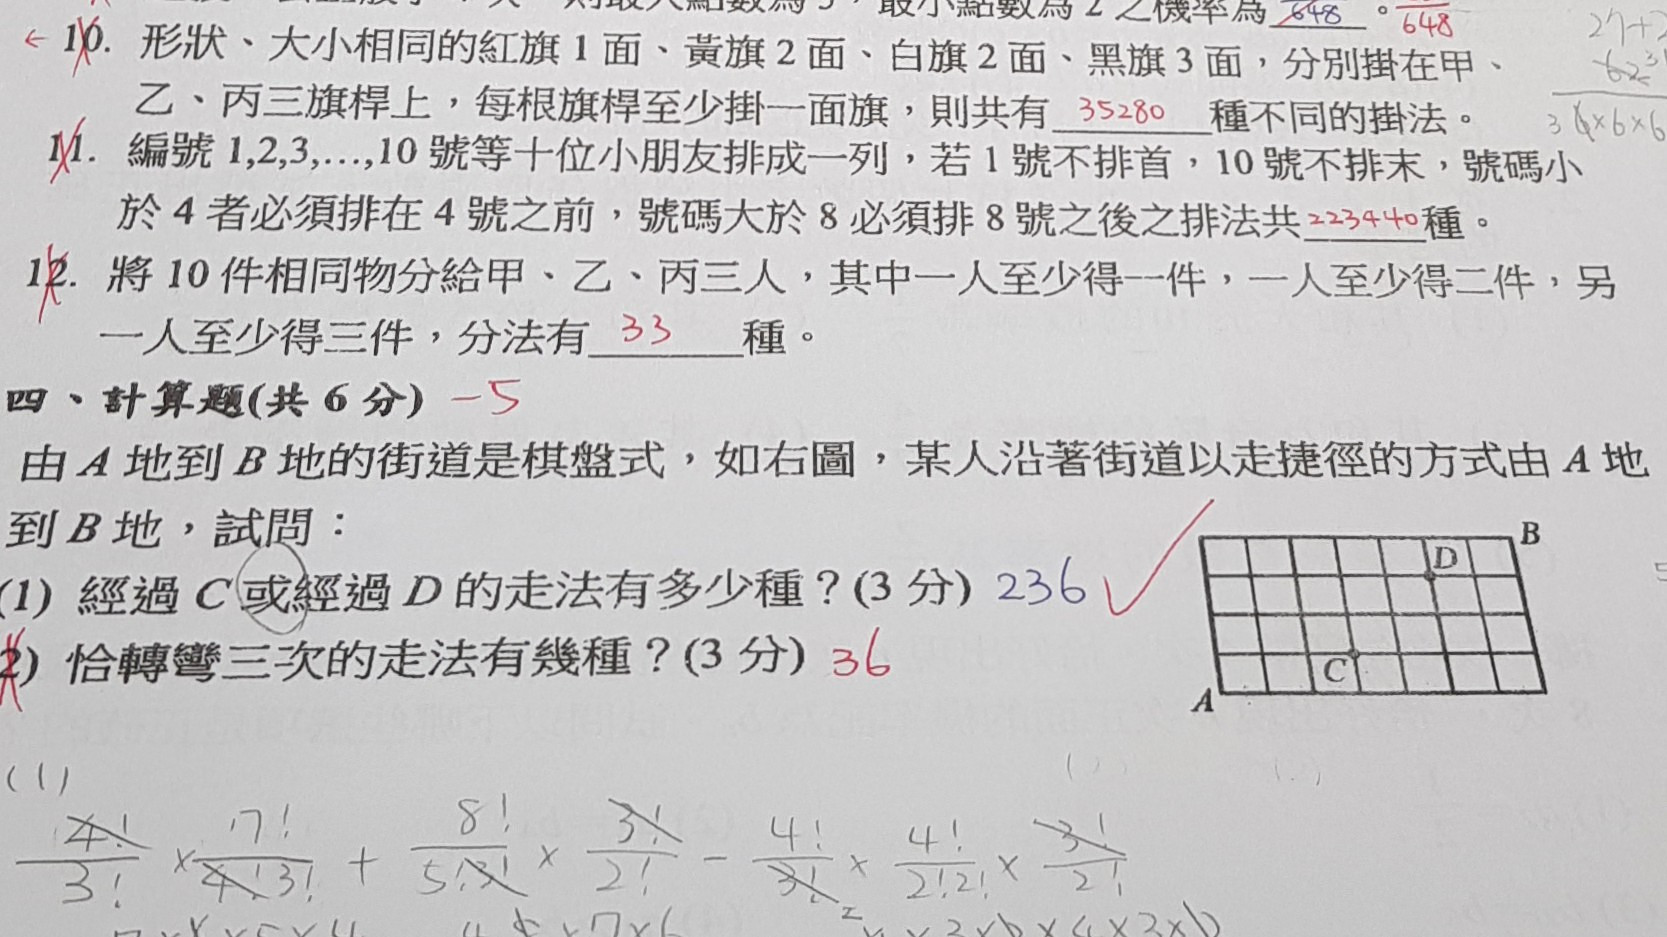 則最大點數為 5，最小點數為 2 之機率為 648。648
← 10. 形狀、大小相同的紅旗 1 面、黃旗 2 面、白旗 2 面、黑旗 3 面，分別掛在甲、
乙、丙三旗桿上，每根旗桿至少掛一面旗，則共有 35280 種不同的掛法。
11. 編號 1,2,3,…,10 號等十位小朋友排成一列，若 1 號不排首，10 號不排末，號碼小
於 4 者必須排在 4 號之前，號碼大於 8 必須排 8 號之後之排法共 223440 種。
12. 將 10 件相同物分給甲、乙、丙三人，其中一人至少得一件，一人至少得二件，另
一人至少得三件，分法有 33 種。
四、計算題(共 6 分) -5
由 A 地到 B 地的街道是棋盤式，如右圖，某人沿著街道以走捷徑的方式由 A 地
到 B 地，試問：
(1) 經過 C 或經過 D 的走法有多少種？(3 分) 236 ✓
2) 恰轉彎三次的走法有幾種？(3 分) 36
B
D
C
A
(1)
4!/3! × 7!/4!3! + 8!/5!3! × 3!/2! - 4!/3! × 4!/2!2! × 3!/2!